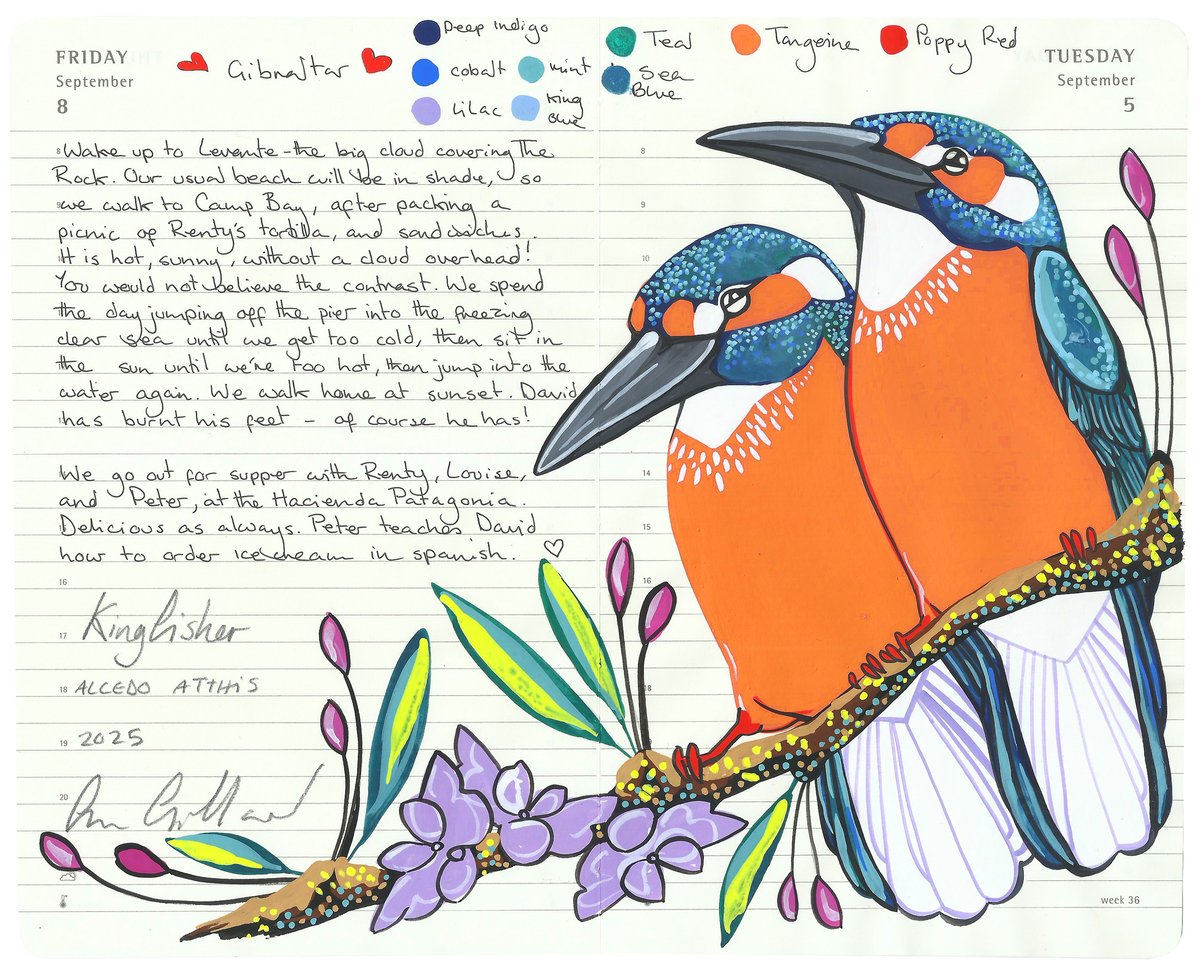 FRIDAY
September
8
Gibraltar
Deep Indigo
cobalt
mint
lilac
King
Blue
Teal
Sea
Blue
Tangerine
Poppy Red
TUESDAY
September
5
8 Wake up to Levante - the big cloud covering The
Rock. Our usual beach will be in shade, so
9 we walk to Camp Bay, after packing a
picnic of Renty's tortilla, and sandwiches.
It is hot, sunny, without a cloud overhead!
You would not believe the contrast. We spend
the day jumping off the pier into the freezing
clear sea until we get too cold, then sit in
the sun until we're too hot, then jump into the
water again. We walk home at sunset. David
has burnt his feet - of course he has!
We go out for supper with Renty, Louise,
and Peter, at the Hacienda Patagonia.
Delicious as always. Peter teaches David
how to order icecream in spanish.
16
Kingfisher
17
18 ALCEDO ATTHIS
19 2025
20
8
9
10
14
15
16
18
week 36